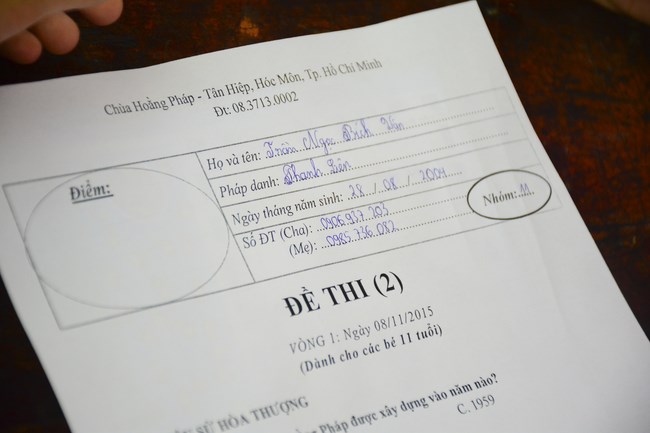 Chùa Hoằng Pháp - Tân Hiệp, Hóc Môn, Tp. Hồ Chí Minh
Đt: 08.3713.0002
Điểm:
Họ và tên: Trần Ngọc Bích Vân
Pháp danh: Thanh Liên
Ngày tháng năm sinh: 28 / 08 / 2004
Số ĐT (Cha): 0906 937 203
(Mẹ): 0985 736 082
Nhóm: 11
ĐỀ THI (2)
VÒNG 1: Ngày 08/11/2015
(Dành cho các bé 11 tuổi)
SỬ HÒA THƯỢNG
Pháp được xây dựng vào năm nào?
C. 1959